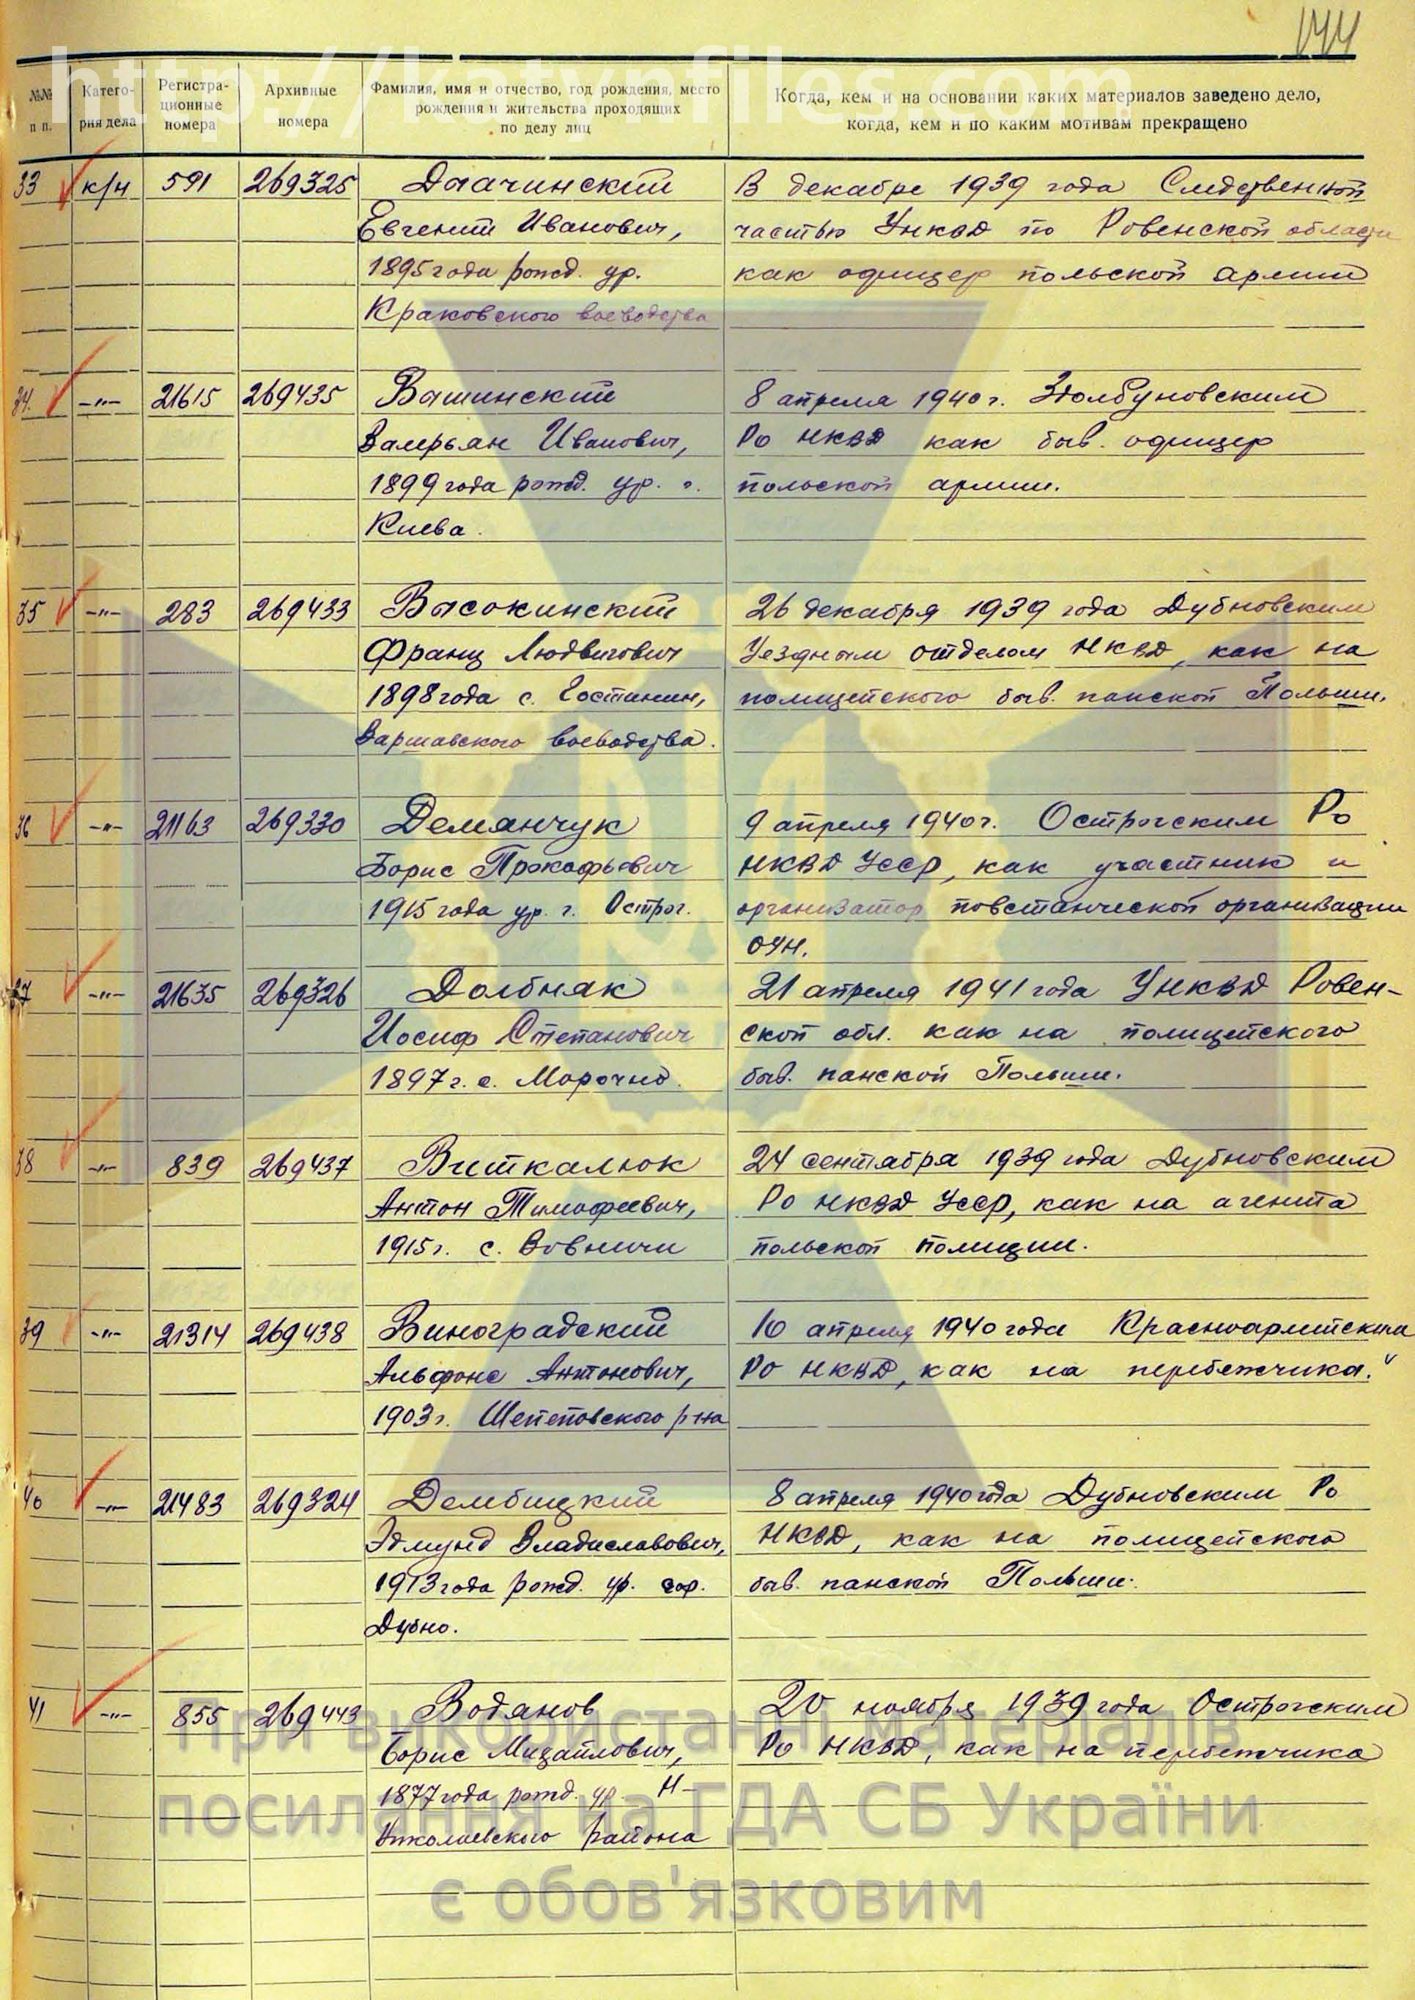 144
http://katynfiles.com
№№ п п.
Катего-
рия дела
Регистра-
ционные
номера
Архивные
номера
Фамилия, имя и отчество, год рождения, место
рождения и жительства проходящих
по делу лиц
Когда, кем и на основании каких материалов заведено дело,
когда, кем и по каким мотивам прекращено
33 к/н 591 269325 В декабре 1939 года Следственной
Евгений Иванович, частью УНКВД по Ровенской области
1895 года рожд. ур. как офицер польской армии
Краковского воеводства
34. -"- 21615 269435 Вашинский 8 апреля 1940 г. Здолбуновским
Валерьян Иванович, Ро НКВД как быв. офицер
1899 года рожд. ур. г. польской армии.
Киева.
35 -"- 283 269433 Высокинский 26 декабря 1939 года Дубновским
Франц Людвигович Уездным отделом НКВД, как на
1898 года с. Гостинин, полицейского быв. панской Польши.
Варшавского воеводства.
36 -"- 21163 269330 Демянчук 9 апреля 1940 г. Острогским Ро
Борис Прокофьевич НКВД УССР, как участник и
1915 года ур. г. Острог. организатор повстанческой организации
ОУН.
37 -"- 21635 269326 Долбняк 21 апреля 1941 года УНКВД Ровен-
Иосиф Степанович ской обл. как на полицейского
1897 г. с. Морочно. быв. панской Польши.
38 -"- 839 269437 Виткалюк 24 сентября 1939 года Дубновским
Антон Тимофеевич, Ро НКВД УССР, как на агента
1915 г. с. Вовничи польской полиции.
39 -"- 21314 269438 Виноградский 10 апреля 1940 года Красноармейским
Альфонс Антонович, РО НКВД, как на перебежчика.
1903 г. Шепетовского р-на
40 -"- 21483 269324 Дембицкий 8 апреля 1940 года Дубновским Ро
Эдмунд Владиславович, НКВД, как на полицейского
1913 года рожд. ур. гор. быв. панской Польши.
Дубно.
41 -"- 855 269443 Водянов 20 ноября 1939 года Острогским
Борис Михайлович, Ро НКВД, как на перебежчика
1877 года рожд. ур. Н-
Николаевского района
При використанні матеріалів
посилання на ГДА СБ України
є обов'язковим